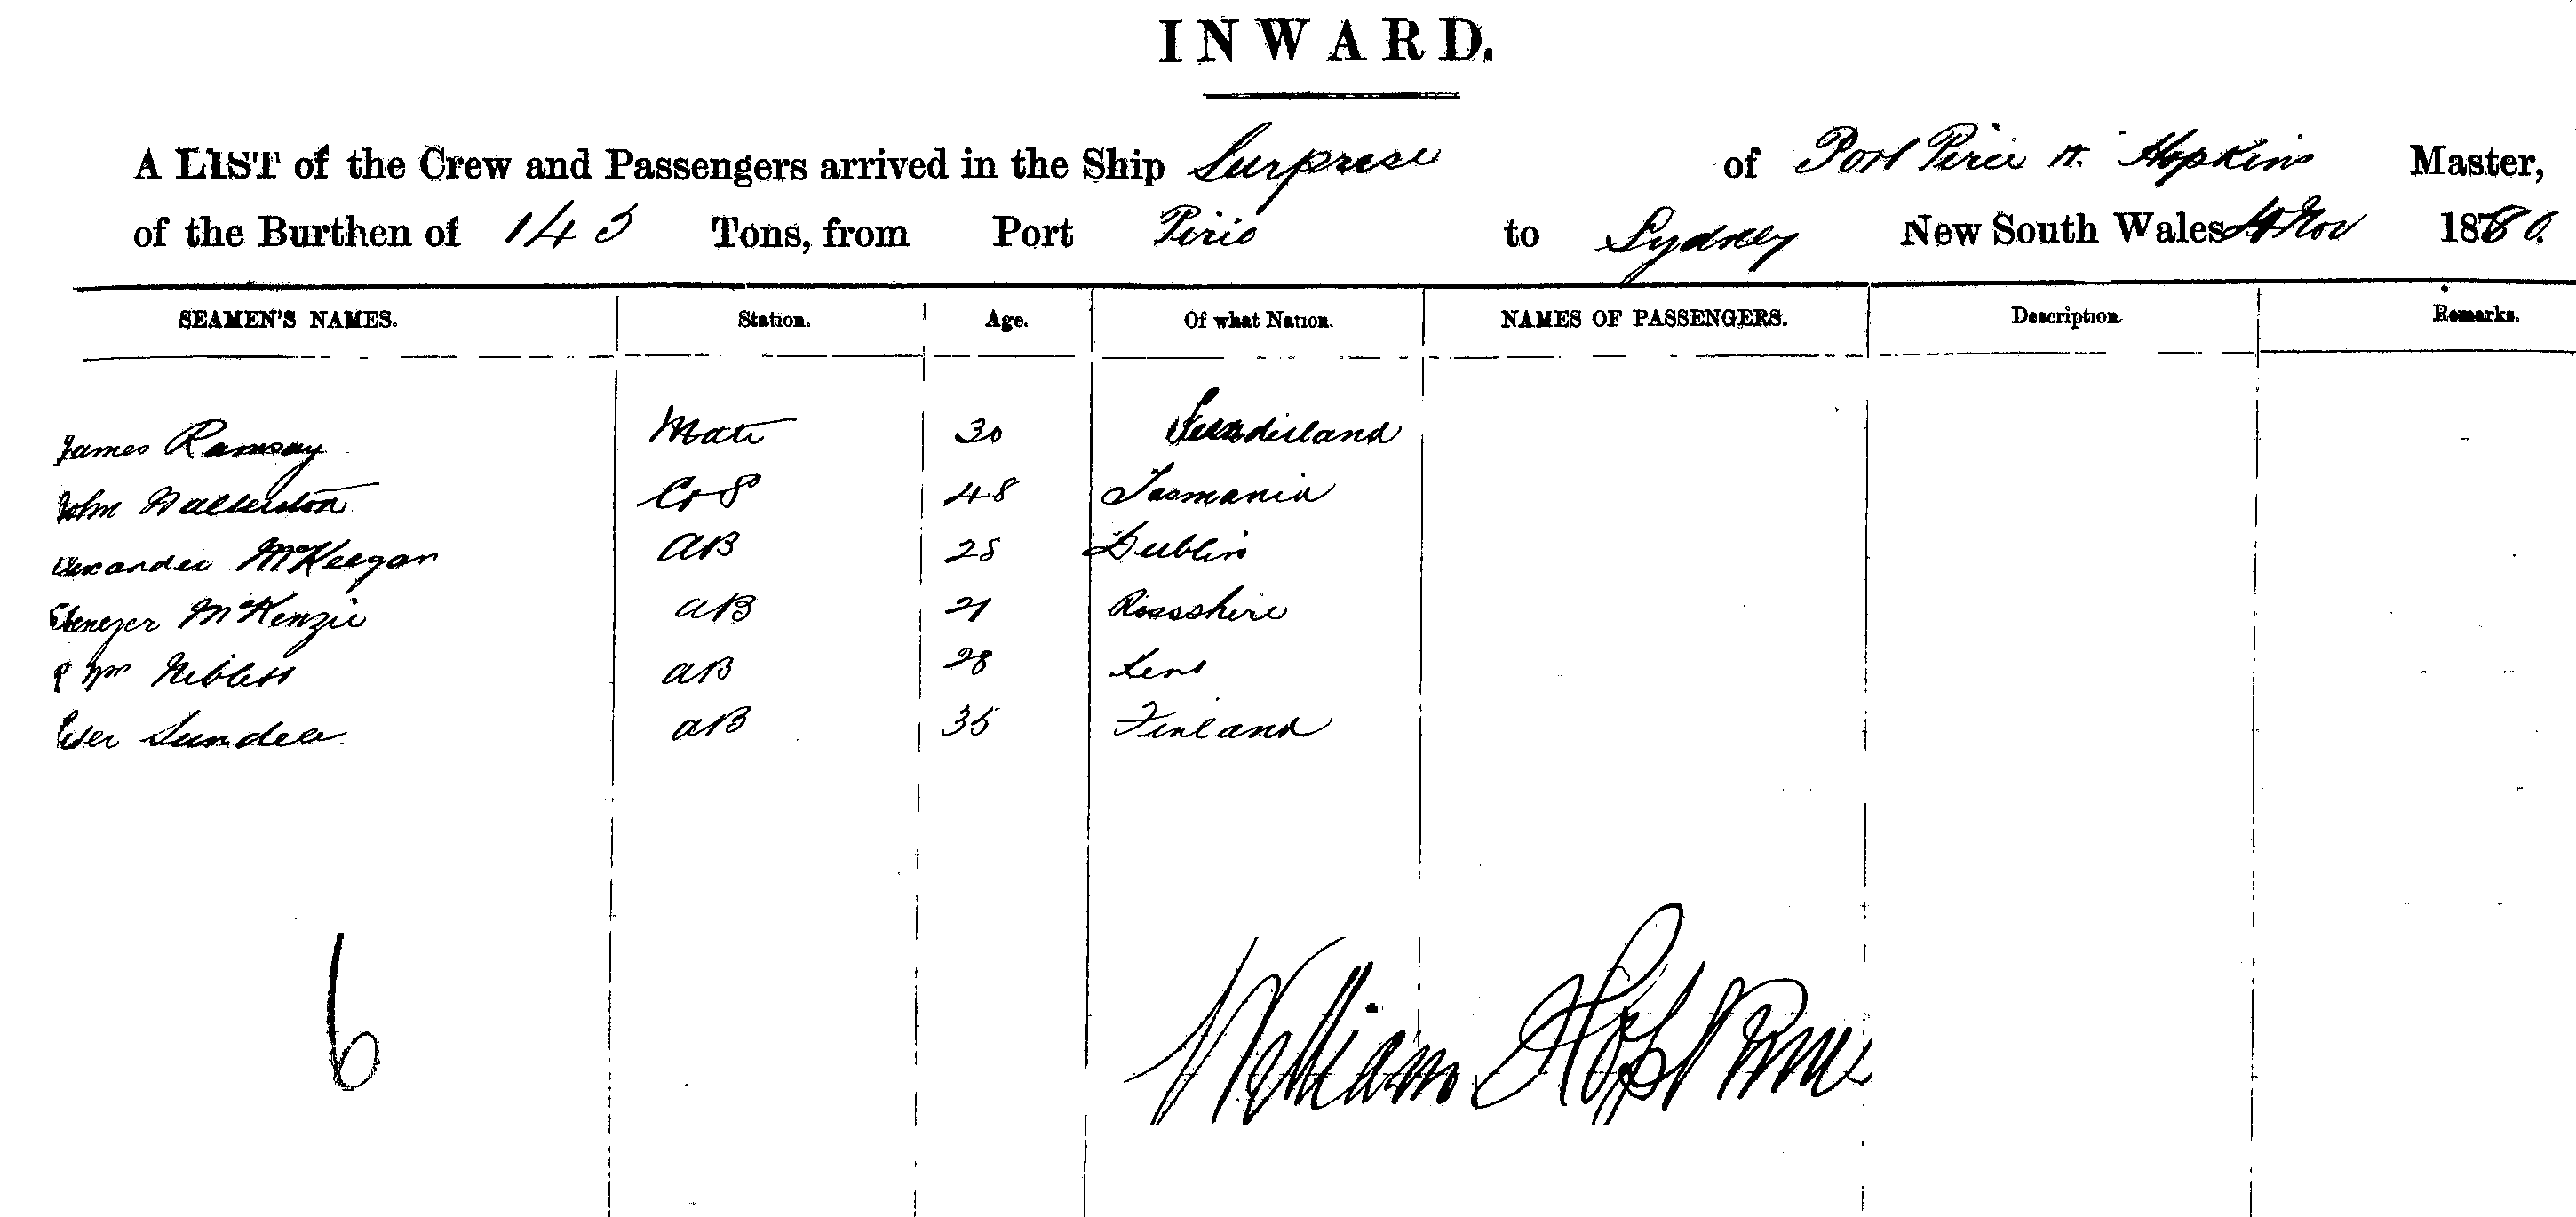 INWARD.
A LIST of the Crew and Passengers arrived in the Ship Surprise of Port Pirie W. Hopkins Master,
of the Burthen of 143 Tons, from Port Pirie to Sydney New South Wales Nov 1880.
SEAMEN'S NAMES. Station. Age. Of what Nation. NAMES OF PASSENGERS. Description. Remarks.
James Ramsay Mate 30 Sunderland
John Walterston 48 Tasmania
Alexander McKeegan AB 28 Dublin
Ebenezer McKenzie AB 21 Rossshire
Wm Niblett AB 28 Kent
Peter Sundell AB 35 Finland
6 William Hopkins